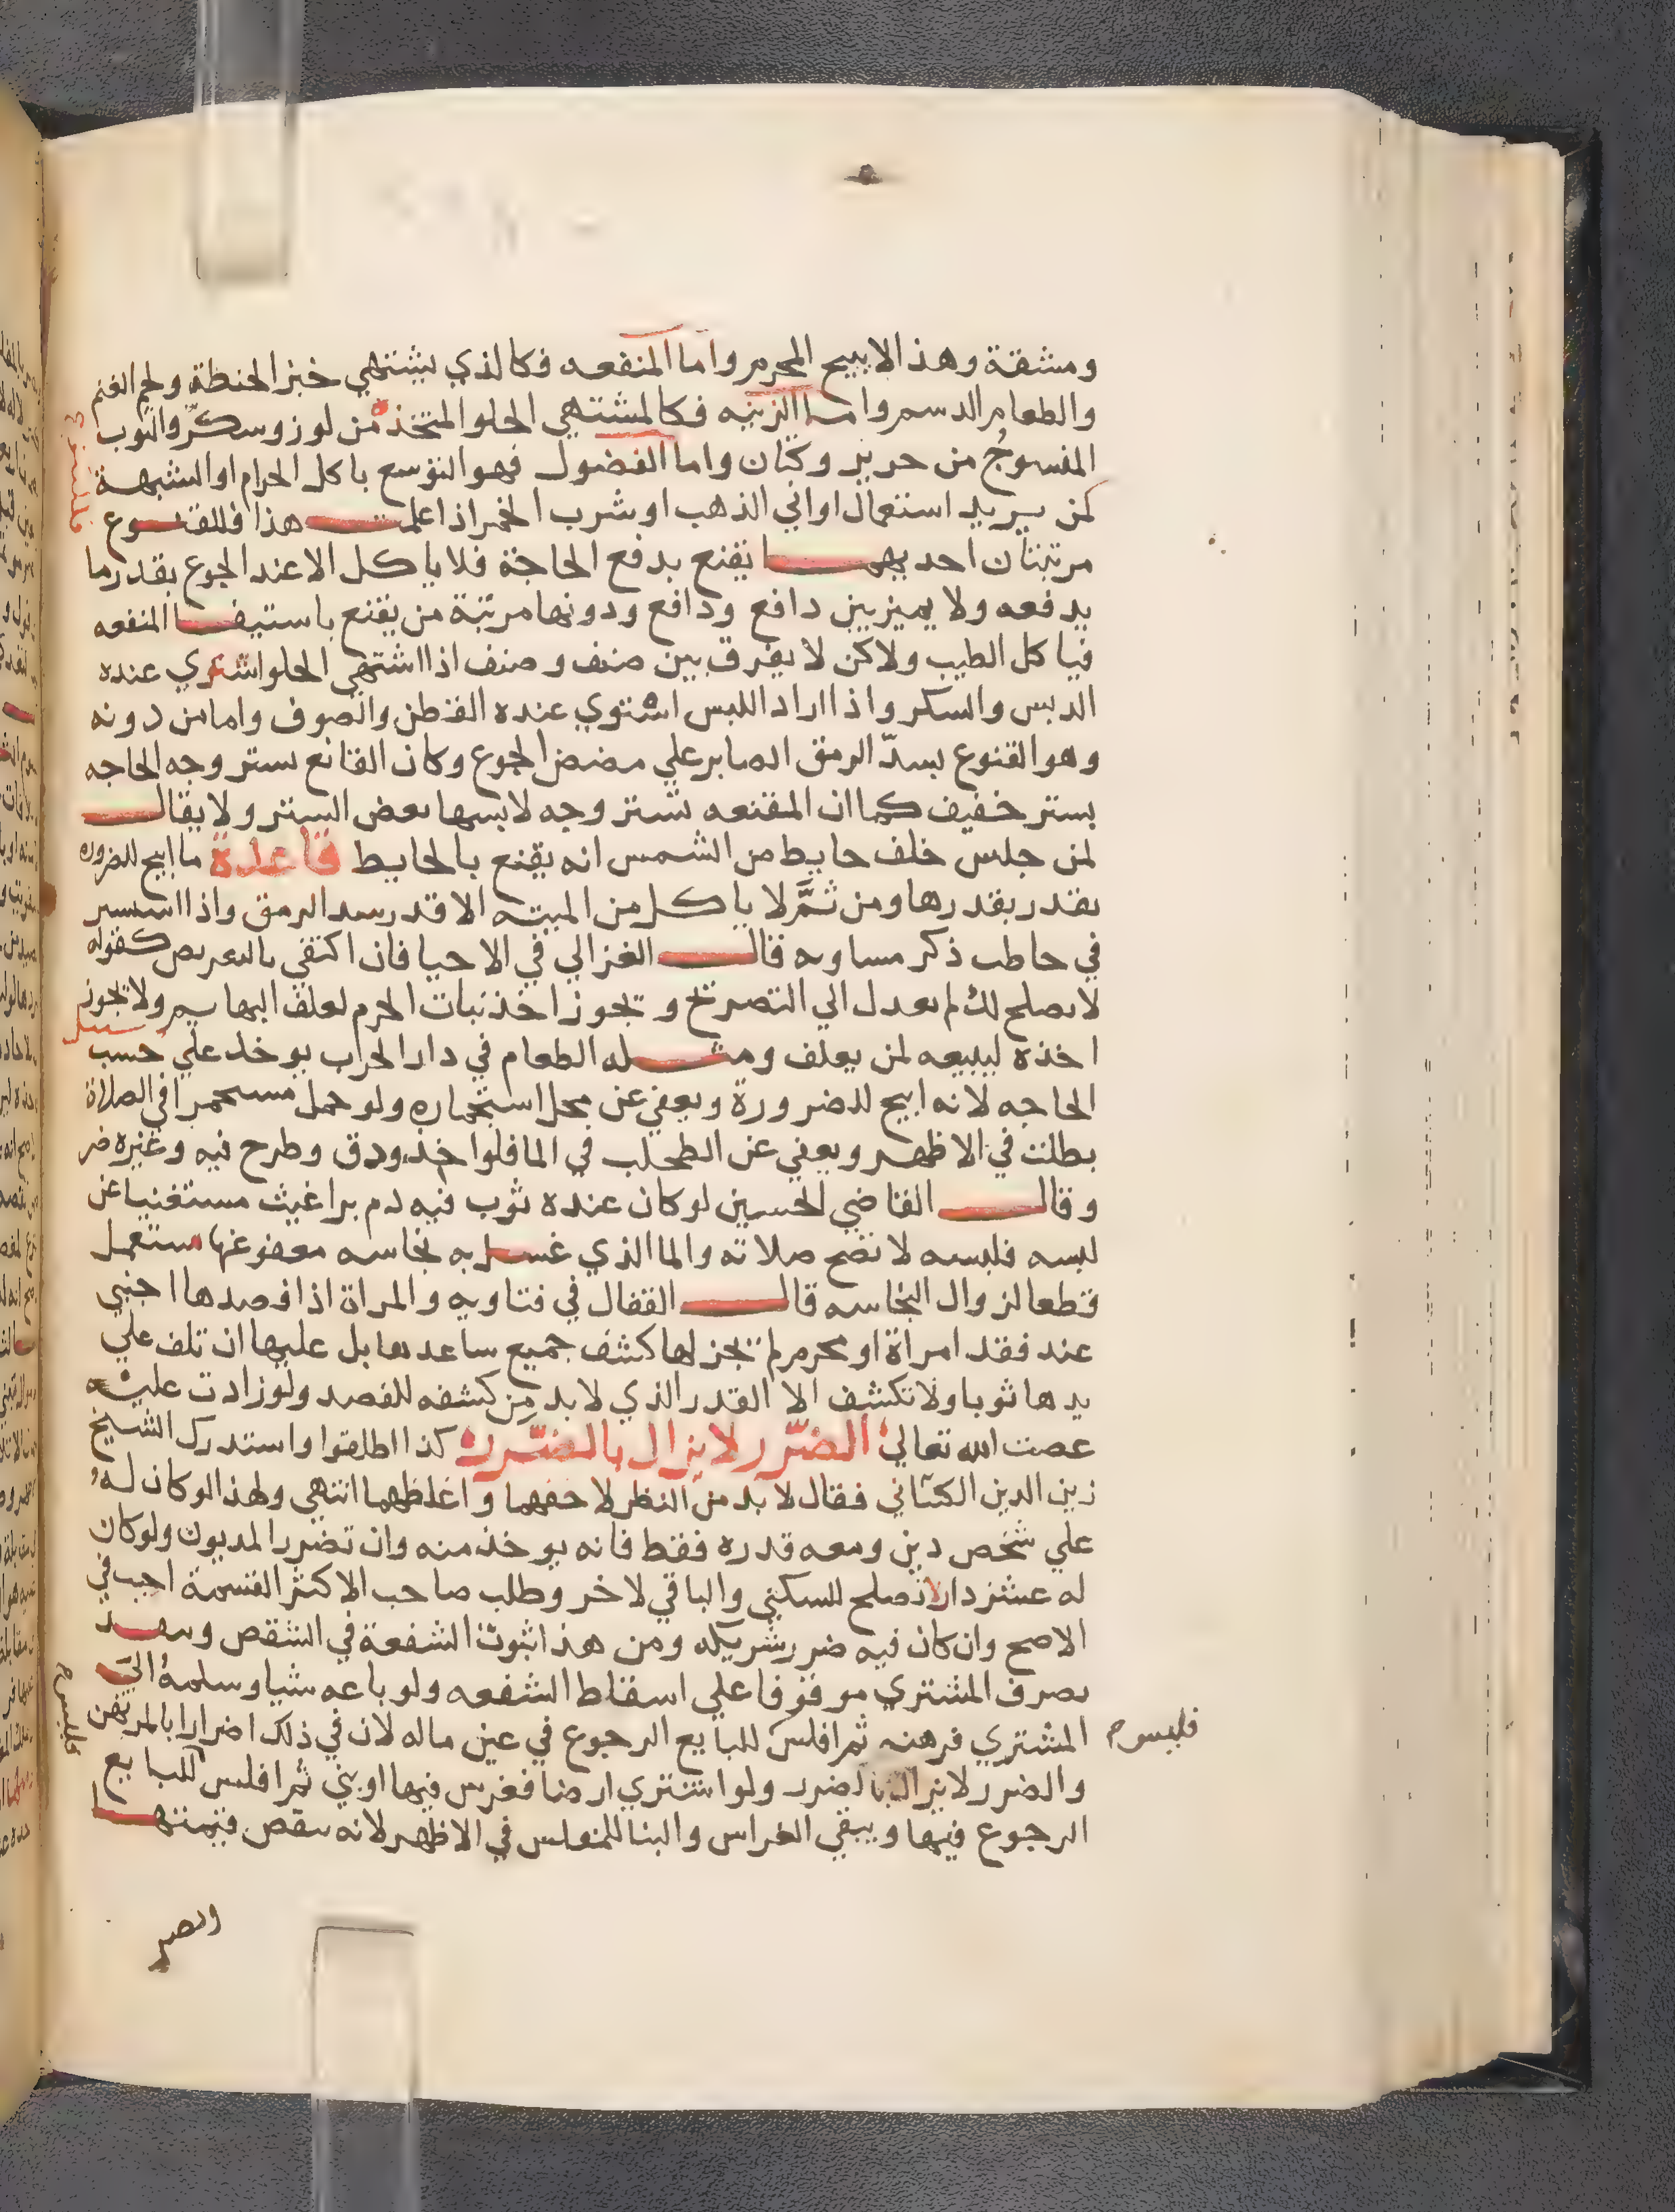 ومشقة وهذا لا يبيح المحرم واما المنفعه فكالذي يشتهي خبز الحنطة ولحم الغنم
والطعام الدسم واما الزينه فكالمشتهي الحلو المتخذ من لوز وسكر والثوب
المنسوج من حرير وكتان واما الفضول فهو التوسع باكل الحرام او الشبهة
كمن يريد استعمال اواني الذهب او شرب الخمر اذا علمت هذا فللقنوع
مرتبتان احديهما يقنع بدفع الحاجة فلا ياكل الا عند الجوع بقدر ما
يدفعه ولا يميز بين دافع ودافع ودونها مرتبة من يقنع باستيفا المنفعه
فياكل الطيب ولاكن لا يفرق بين صنف وصنف اذا اشتهي الحلو استوي عنده
الدبس والسكر واذا اراد اللبس استوي عنده القطن والصوف واما من دونه
وهو القنوع بسدّ الرمق الصابر علي مضض الجوع وكان القانع يستر وجه الحاجه
بستر خفيف كما ان المقنعه تستر وجه لابسها بعض الستر ولا يقال
لمن جلس خلف حايط من الشمس انه يقنع بالحايط قاعدة ما ابيح للضروره
يقدر بقدرها ومن ثمَّ لا ياكل من الميته الا قدر سد الرمق واذا استسير
في خاطب ذكر مساويه قال الغزالي في الاحيا فان اكتفي بالتعريض كقوله
لا يصلح لك لم يعدل الي التصريح ويجوز اخذ نبات الحرم لعلف البهايم ولا يجوز
اخذه ليبيعه لمن يعلف ومثله الطعام في دار الحرب يوخذ علي حسب
الحاجه لانه ابيح للضرورة ويعفي عن محل استجماره ولو حمل مستجمرا في الصلاة
بطلت في الاظهر ويعفي عن الطحلب في الما فلو اخذ ودق وطرح فيه وغيره ضر
وقال القاضي الحسين لو كان عنده ثوب فيه دم براغيث مستغنيا عن
لبسه فلبسه لا تصح صلاته والما الذي غسل به نجاسه معفو عنها مستعمل
قطعا لزوال النجاسه قال القفال في فتاويه والمراة اذا فصدها اجنبي
عند فقد امراة او محرم لم يجز لها كشف جميع ساعدها بل عليها ان تلف علي
يدها ثوبا ولا تكشف الا القدر الذي لا بد من كشفه للفصد ولو زادت عليه
عصت الله تعالي الضّرر لا يزال بالضّرر كذا اطلقوا واستدرك الشيخ
زين الدين الكتاني فقال لا بد من النظر لاخفهما واغلظهما انتهي ولهذا لو كان له
علي شخص دين ومعه قدره فقط فانه يوخذ منه وان تضرر المديون ولو كان
له عشر دار لا تصلح للسكني والباقي لاخر وطلب صاحب الاكثر القسمة اجيب في
الاصح وان كان فيه ضرر شريكه ومن هذا ثبوت الشفعة في الشقص وينفذ
تصرف المشتري موقوفا علي اسقاط الشفعه ولو باعه شيا وسلمه الي
المشتري فرهنه ثم افلس للبايع الرجوع في عين ماله لان في ذلك اضرارا بالمرتهن
فليس
والضرر لا يزال بالضرر ولو اشتري ارضا فغرس فيها او بني ثم افلس للبايع
الرجوع فيها ويبقي الغراس والبنا للمفلس في الاظهر لانه ينقص قيمتها
والضر